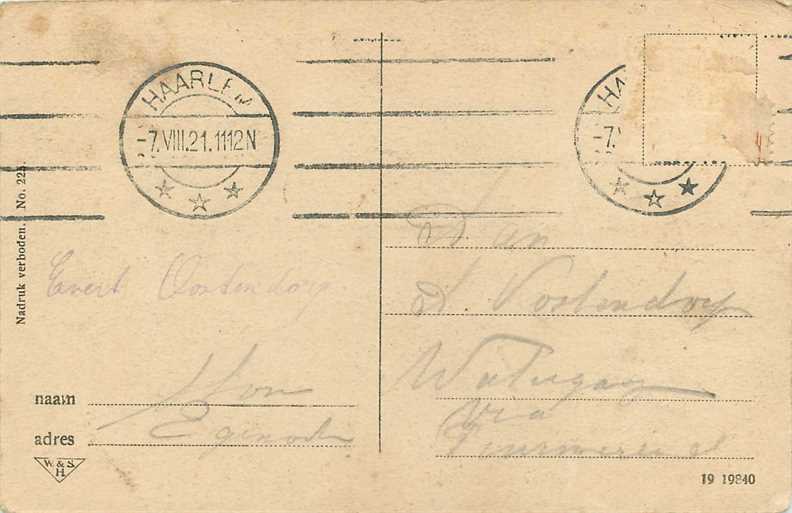 HAARLEM
-7.VIII.21.1112N
HA
-7.
Nadruk verboden. No. 225.
Evert Oostendorp
naam
adres
W. & S.
H.
Aan
Oostendorp
via
Purmerend
19 19840